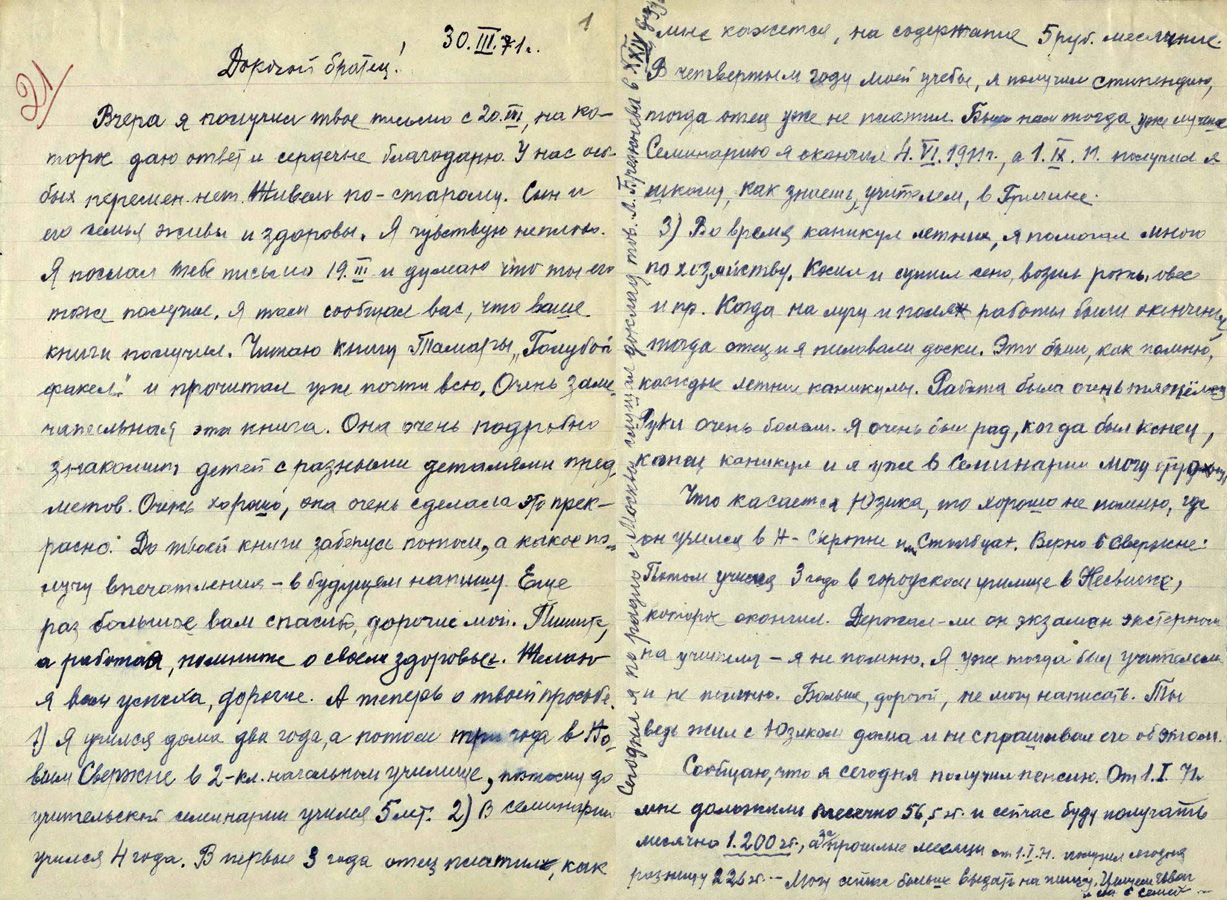 1
30.III.71г.
21/
Дорогой братец!
Вчера я получил твое письмо с 20.III, на ко-
торое даю ответ и сердечно благодарю. У нас осо-
бых перемен нет. Живем по-старому. Сын и
его семья живы и здоровы. Я чувствую неплохо.
Я послал тебе письмо 19.III и думаю что ты его
тоже получил. Я там сообщал вас, что ваше
книги получил. Читаю книгу Тамары „Голубой
факел" и прочитал уже почти всю. Очень заме-
чательная эта книга. Она очень подробно
знакомит детей с разными деталями пред-
метов. Очень хорошо, она очень сделала это прек-
расно. До твоей книги заберусь потом, а какое по-
лучу впечатления – в будущем напишу. Еще
раз большое вам спасибо, дорогие мои. Пишите,
а работая, помните о своем здоровье. Желаю
я вам успеха, дорогие. А теперь о твоей просьбе.
1) Я учился дома два года, а потом три года в Но-
вым Свержне в 2-кл. начальном училище, потом до
учительской семинарии учился 5 лет. 2) В семинарии
учился 4 года. В первые 3 года отец платил, как
мне кажется, на содержание 5 руб. месячние.
В четвертым году моей учебы, я получил стипендию,
тогда отец уже не платил. Было нам тогда уже лучше
Семинарию я окончил 4.VI.1911г., а 1.IX.11. получил я
школу, как знаешь, учителем, в Гричине.
3) Во время каникул летних, я помогал много
по хозяйству. Косил и сушил сено, возил рожь, овес
и пр. Когда на лугу и полях работы были окончены,
тогда отец и я пиловали доски. Это были, как помню,
каждые летние каникулы. Работа была очень тяжёлая
Руки очень болели. Я очень был рад, когда был конец,
конец каникул и я уже в Семинарии могу
Что касается Юзика, то хорошо не помню, где
он учился в Н-Свержне и в Столбцах. Верно в Свержне.
Потом учился 3 года в городском училище в Несвиже,
которое окончил. Держал-ли он экзамен экстерном
на учителя – я не помню. Я уже тогда был учителем
и не помню. Больше, дорогой, не могу написать. Ты
ведь жил с Юзиком дома и не спрашивал его об этом.
Сообщаю, что я сегодня получил пенсию. От 1.I.71г.
мне доложили месячно 56,5 зл. и сейчас буду получать
месячно 1.200 зл., а за прошлые месяцы от 1.I.71. получил сегодня
разницу 226 зл. – Могу сейчас больше выдать на пищу. Целуем
Сегодня я по радио с Москвы слушал доклад тов. Л. Брежнева в XXIV